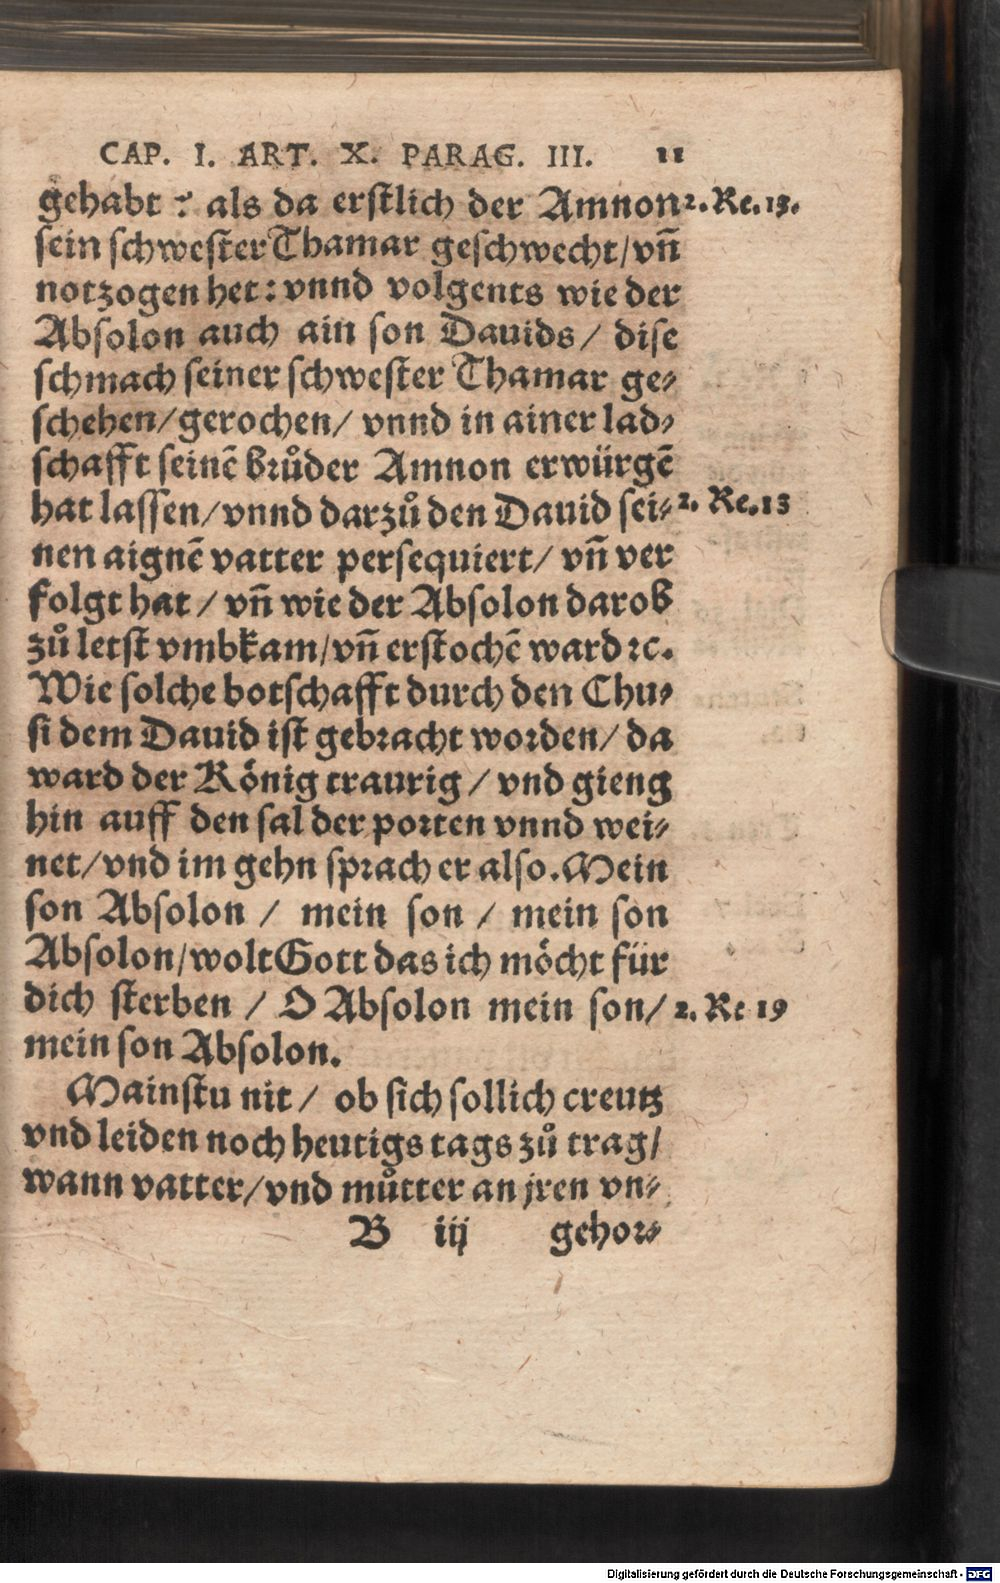 CAP. I. ART. X. PARAG. III. 11
gehabt ? als da erstlich der Amnon 2. Re. 13.
sein schwester Thamar geschwecht/ vn̄
notzogen het: vnnd volgents wie der
Absolon auch ain son Dauids/ dise
schmach seiner schwester Thamar ge⸗
schehen/ gerochen/ vnnd in ainer lad⸗
schafft seinē brůder Amnon erwürgē
hat lassen/ vnnd darzů den Dauid sei⸗ 2. Re. 13
nen aignē vatter persequiert/ vn̄ ver
folgt hat / vn̄ wie der Absolon darob
zů letst vmbkam/ vn̄ erstochē ward ꝛc.
Wie solche botschafft durch den Chu⸗
si dem Dauid ist gebracht worden/ da
ward der König traurig / vnd gieng
hin auff den sal der porten vnnd wei⸗
net/ vnd im gehn sprach er also. Mein
son Absolon / mein son / mein son
Absolon/ wolt Gott das ich möcht für
dich sterben / O Absolon mein son/ 2. Re 19
mein son Absolon.
Mainstu nit / ob sich sollich creutz
vnd leiden noch heutigs tags zů trag/
wann vatter/ vnd můtter an jren vn⸗
B iij gehor⸗
Digitalisierung gefördert durch die Deutsche Forschungsgemeinschaft - DFG